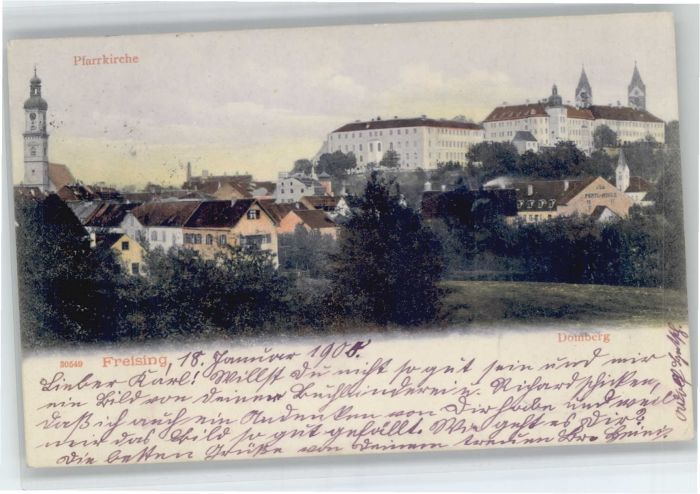 Pfarrkirche
Domberg
30549 Freising, 18. Januar 1905.
Lieber Karl! Willst Du nicht so gut sein und mir
ein Bild von Deiner Buchbinderei u. Richard schicken,
daß ich auch ein Andenken von Dir habe und weil
mir das Bild so gut gefällt. Wie geht es Dir?
Die besten Grüße von Deinem treuen Br.